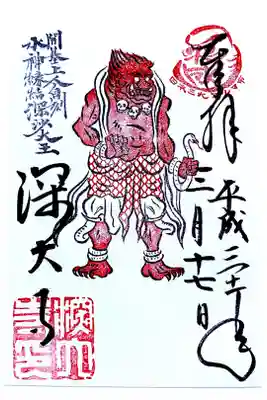 奉拝
平成三十一年
三月十七日
開基上人自刻
水神縁結深沙大王
深大寺